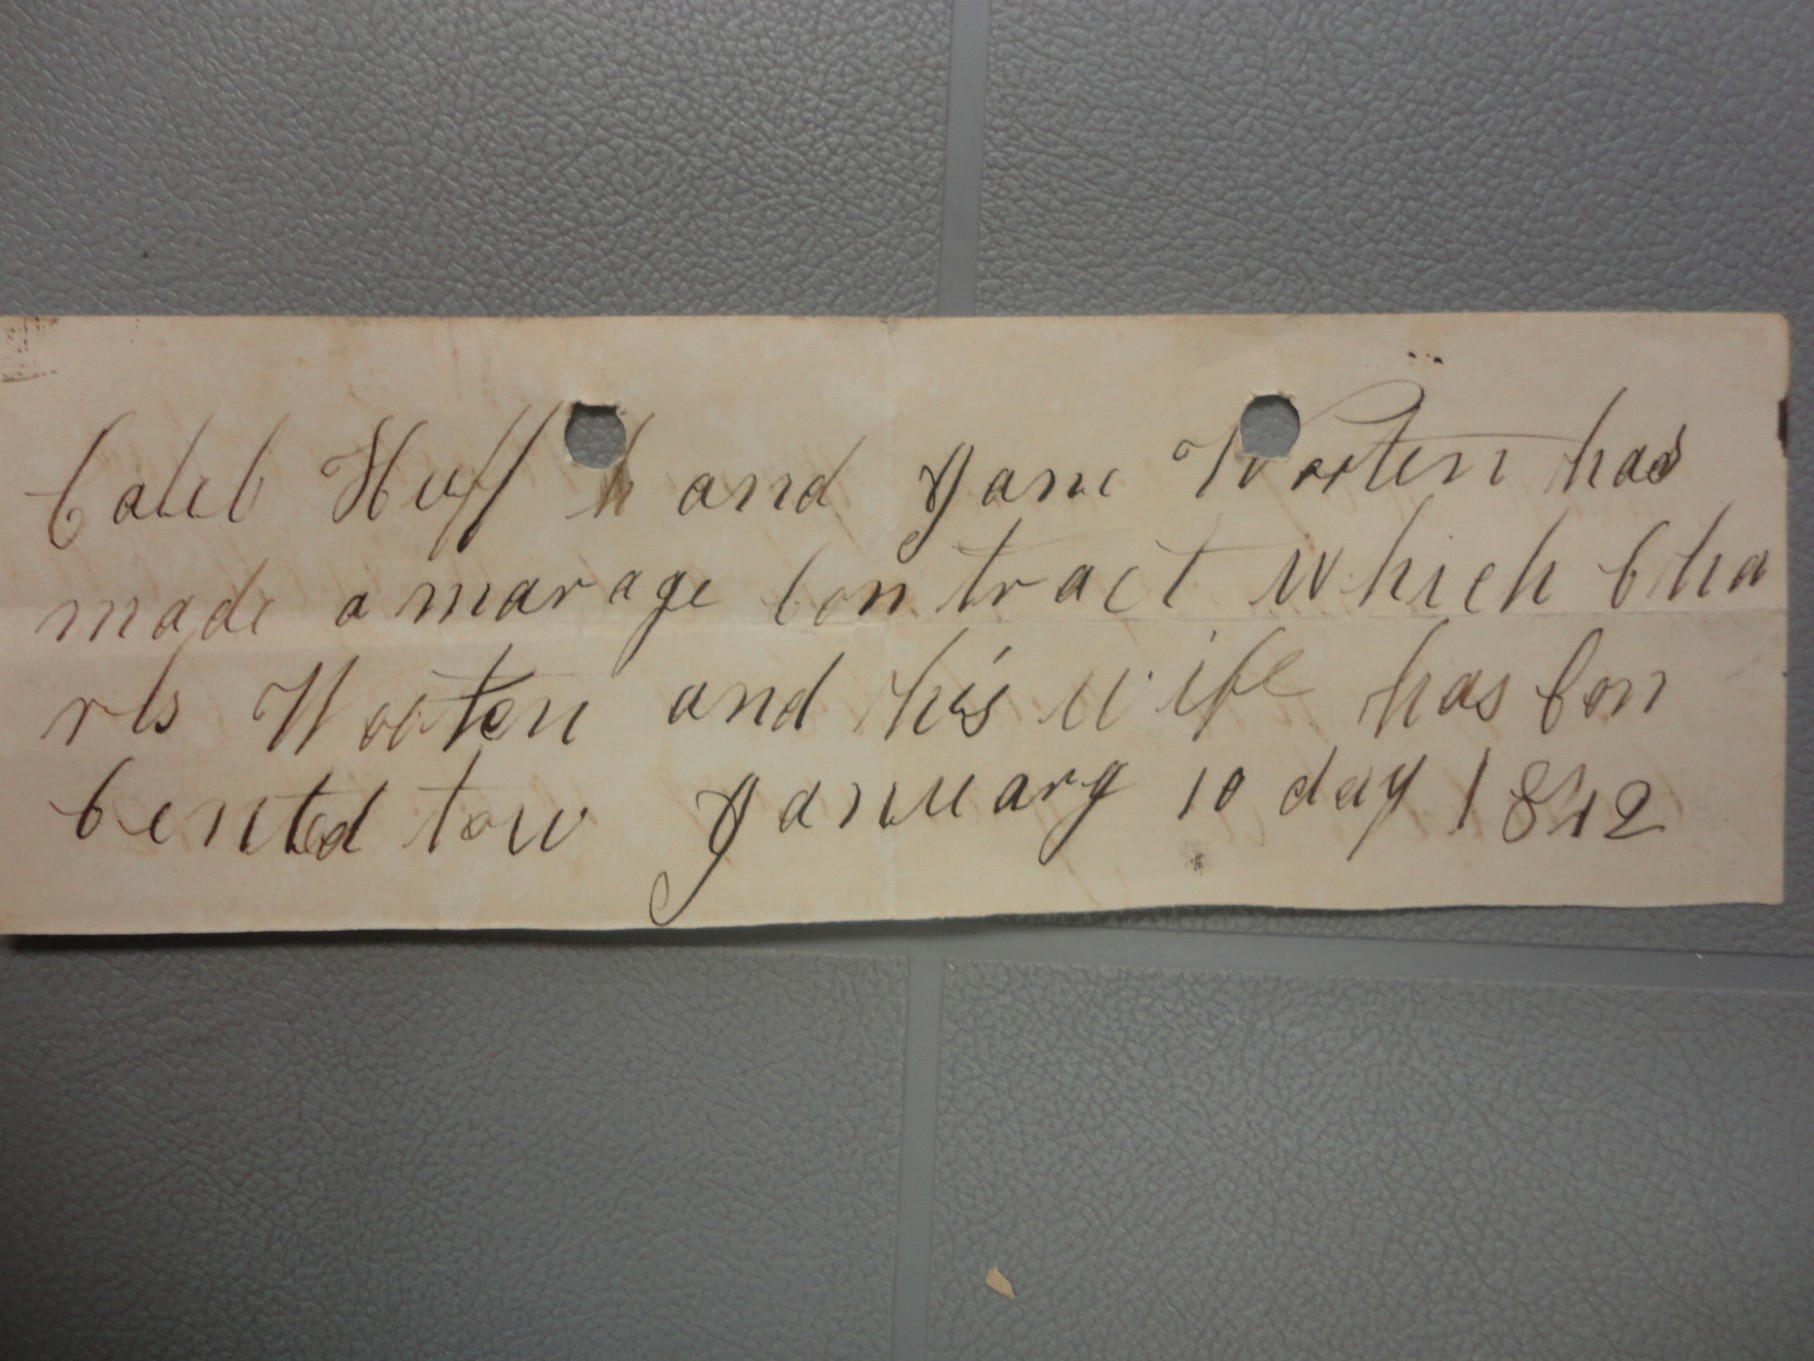 Caleb Huff h and Jane Wooten has
made a marage Contract which Cha
rls Wooten and his wife has Con
cented tow January 10 day 1842